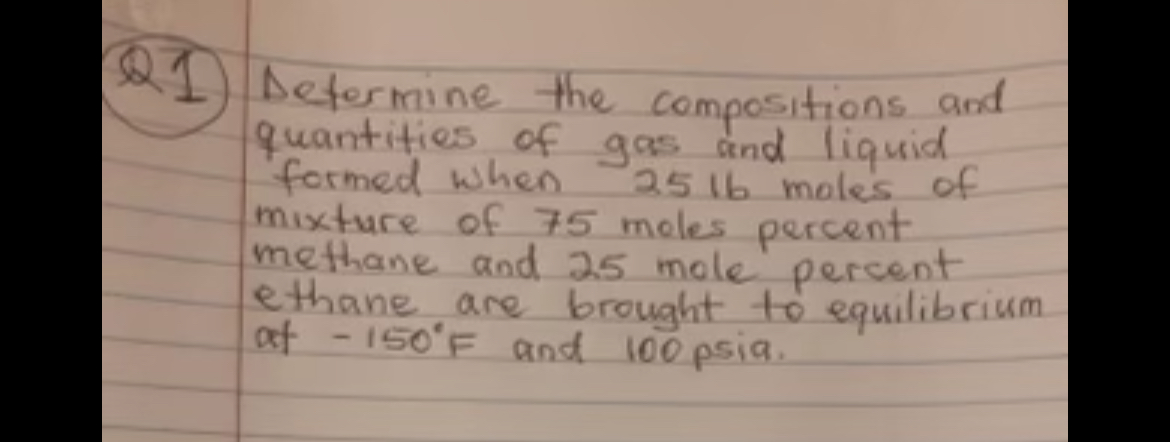 Q1 Determine the compositions and
quantities of gas and liquid
formed when 25 lb moles of
mixture of 75 moles percent
methane and 25 mole percent
ethane are brought to equilibrium
at -150°F and 100 psia.